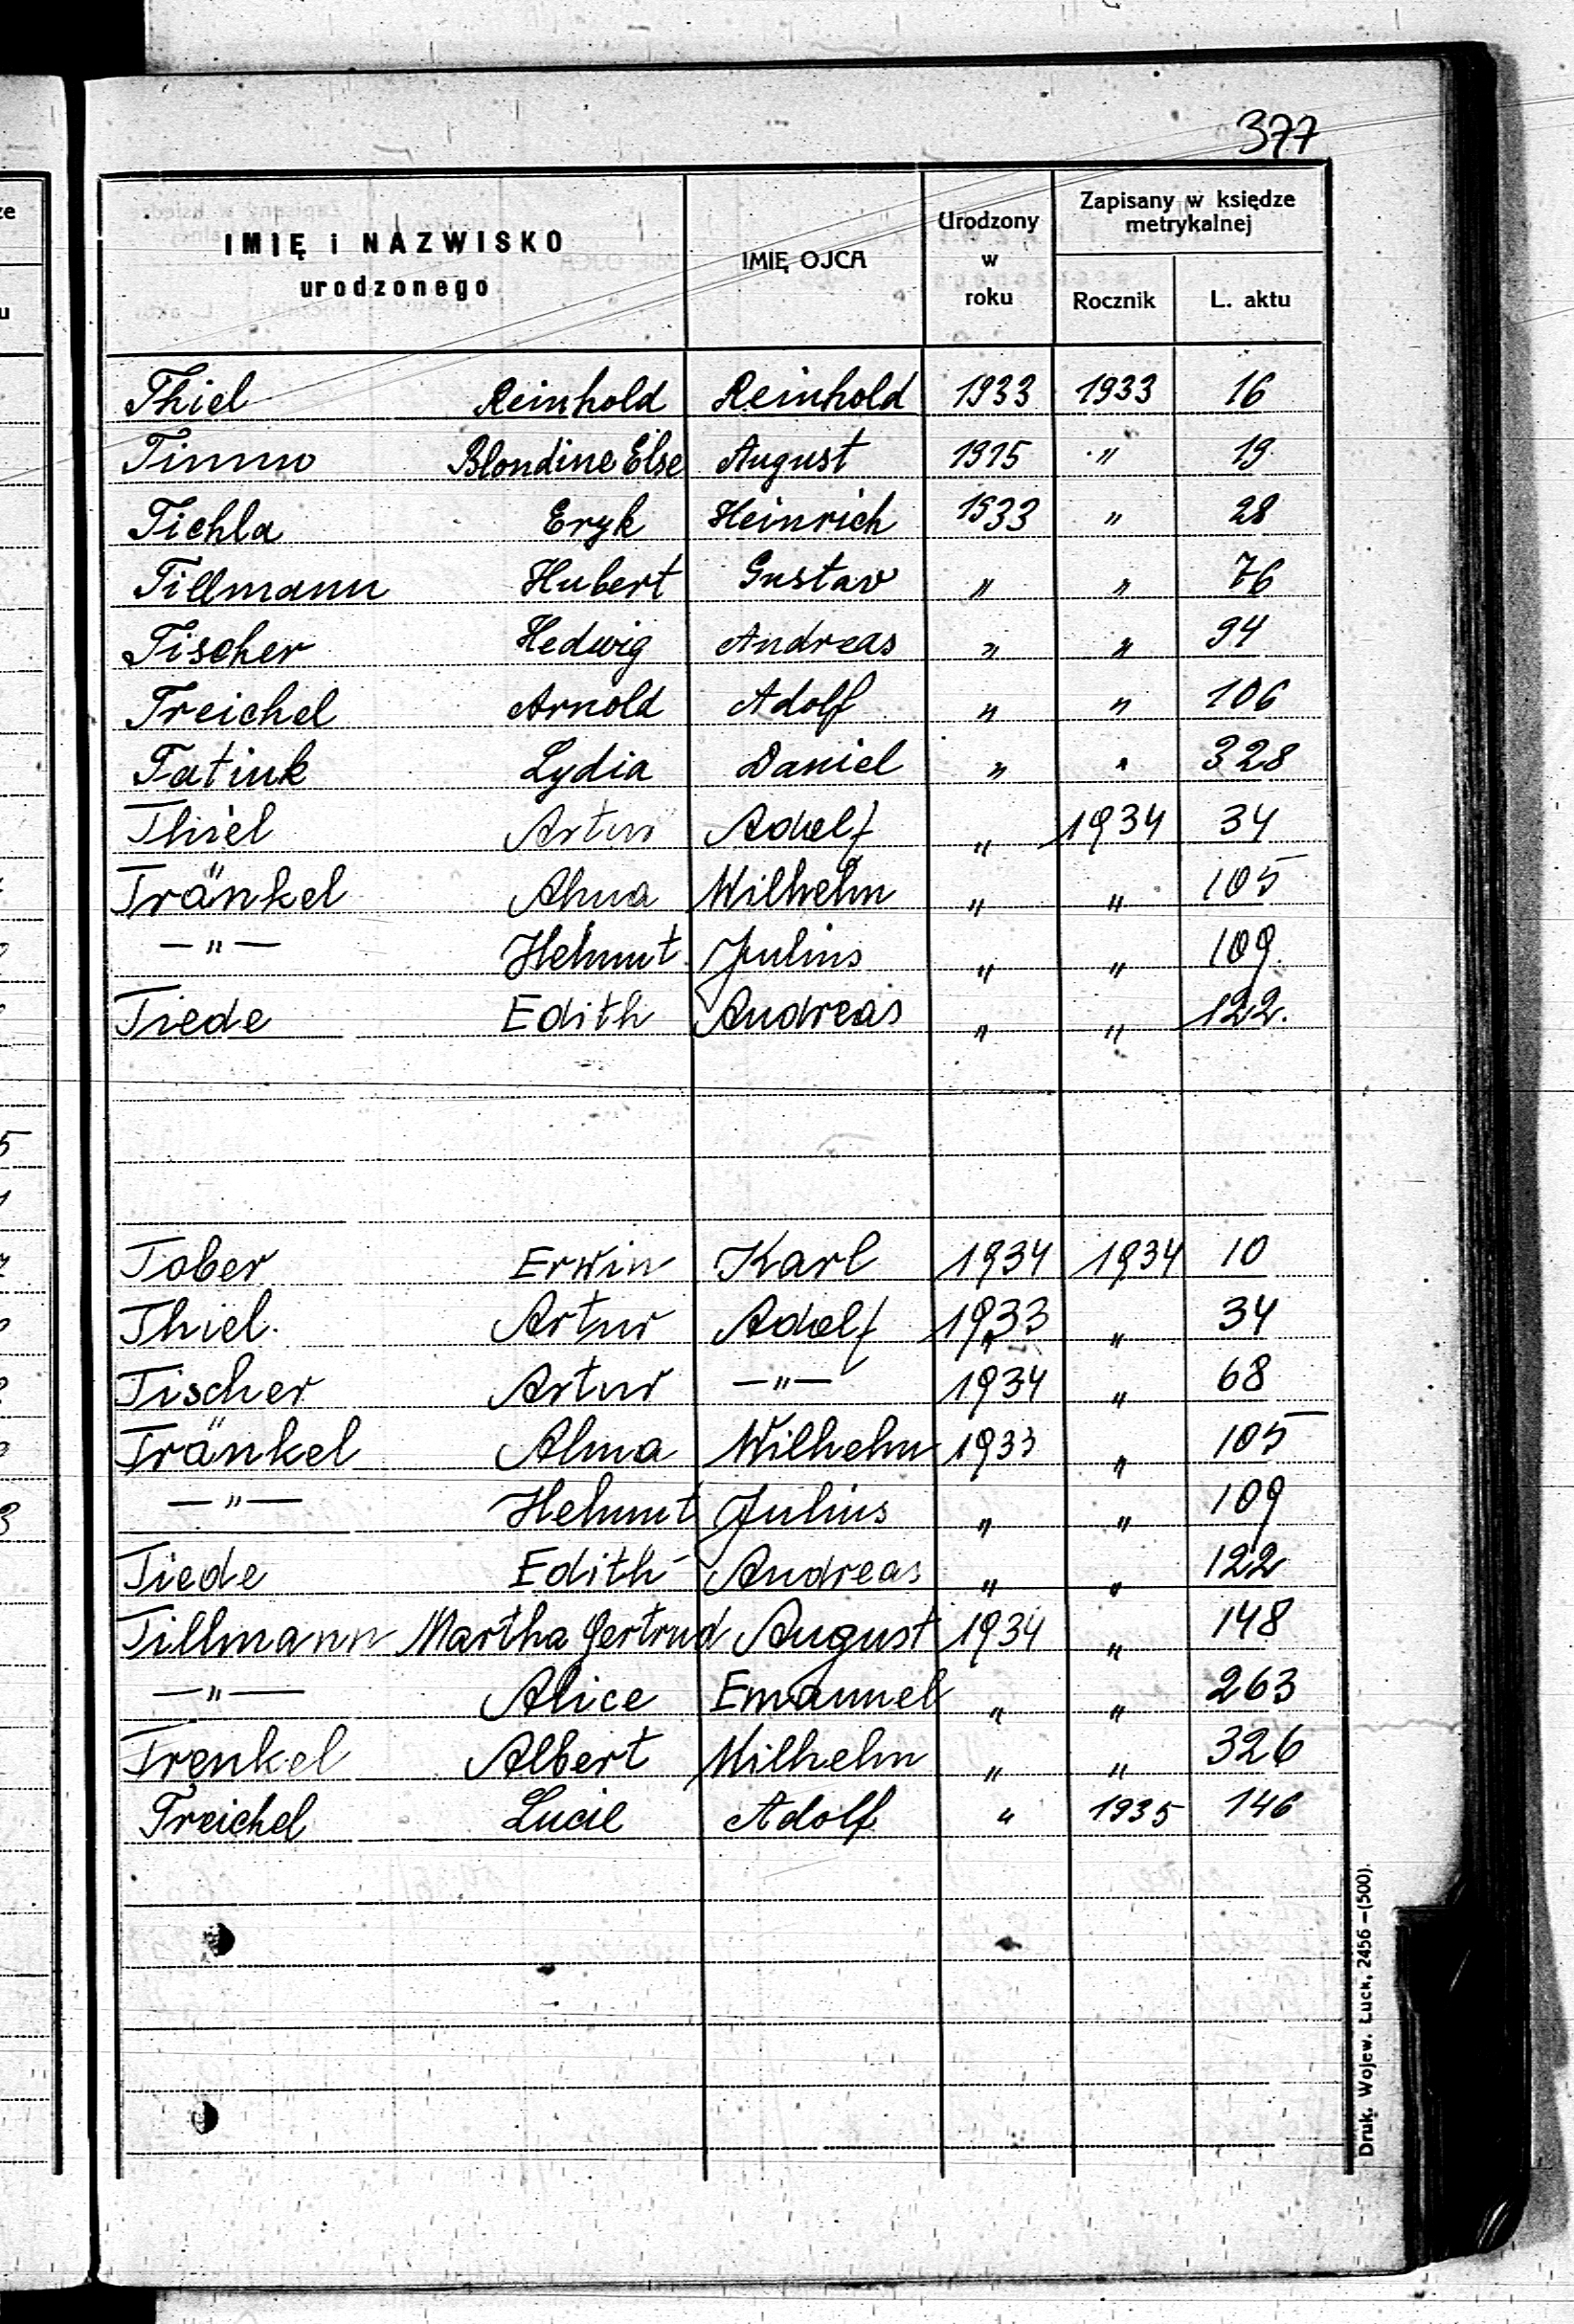 377
IMIĘ i NAZWISKO urodzonego IMIĘ OJCA Urodzony w roku Zapisany w księdze metrykalnej Rocznik L. aktu
Thiel Reinhold Reinhold 1933 1933 16
Timm Blondine Else August 1915 " 19
Tichla Eryk Heinrich 1933 " 28
Tillmann Hubert Gustav " " 76
Tischer Hedwig Andreas " " 94
Treichel Arnold Adolf " " 106
Tatiuk Lydia Daniel " " 328
Thiel Artur Adolf " 1934 34
Tränkel Alma Wilhelm " " 105
—"— Helmut Julius " " 109.
Tiede Edith Andreas " " 122.
Tober Erwin Karl 1934 1934 10
Thiel. Artur Adolf 1933 " 34
Tischer Artur —"— 1934 " 68
Tränkel Alma Wilhelm 1933 " 105
—"— Helmut Julius " " 109
Tiede Edith Andreas " " 122
Tillmann Martha Gertrud August 1934 " 148
—"— Alice Emanuel " " 263
Trenkel Albert Wilhelm " " 326
Treichel Lucie Adolf " 1935 146
Druk. Wojew. Łuck, 2456 – (500).